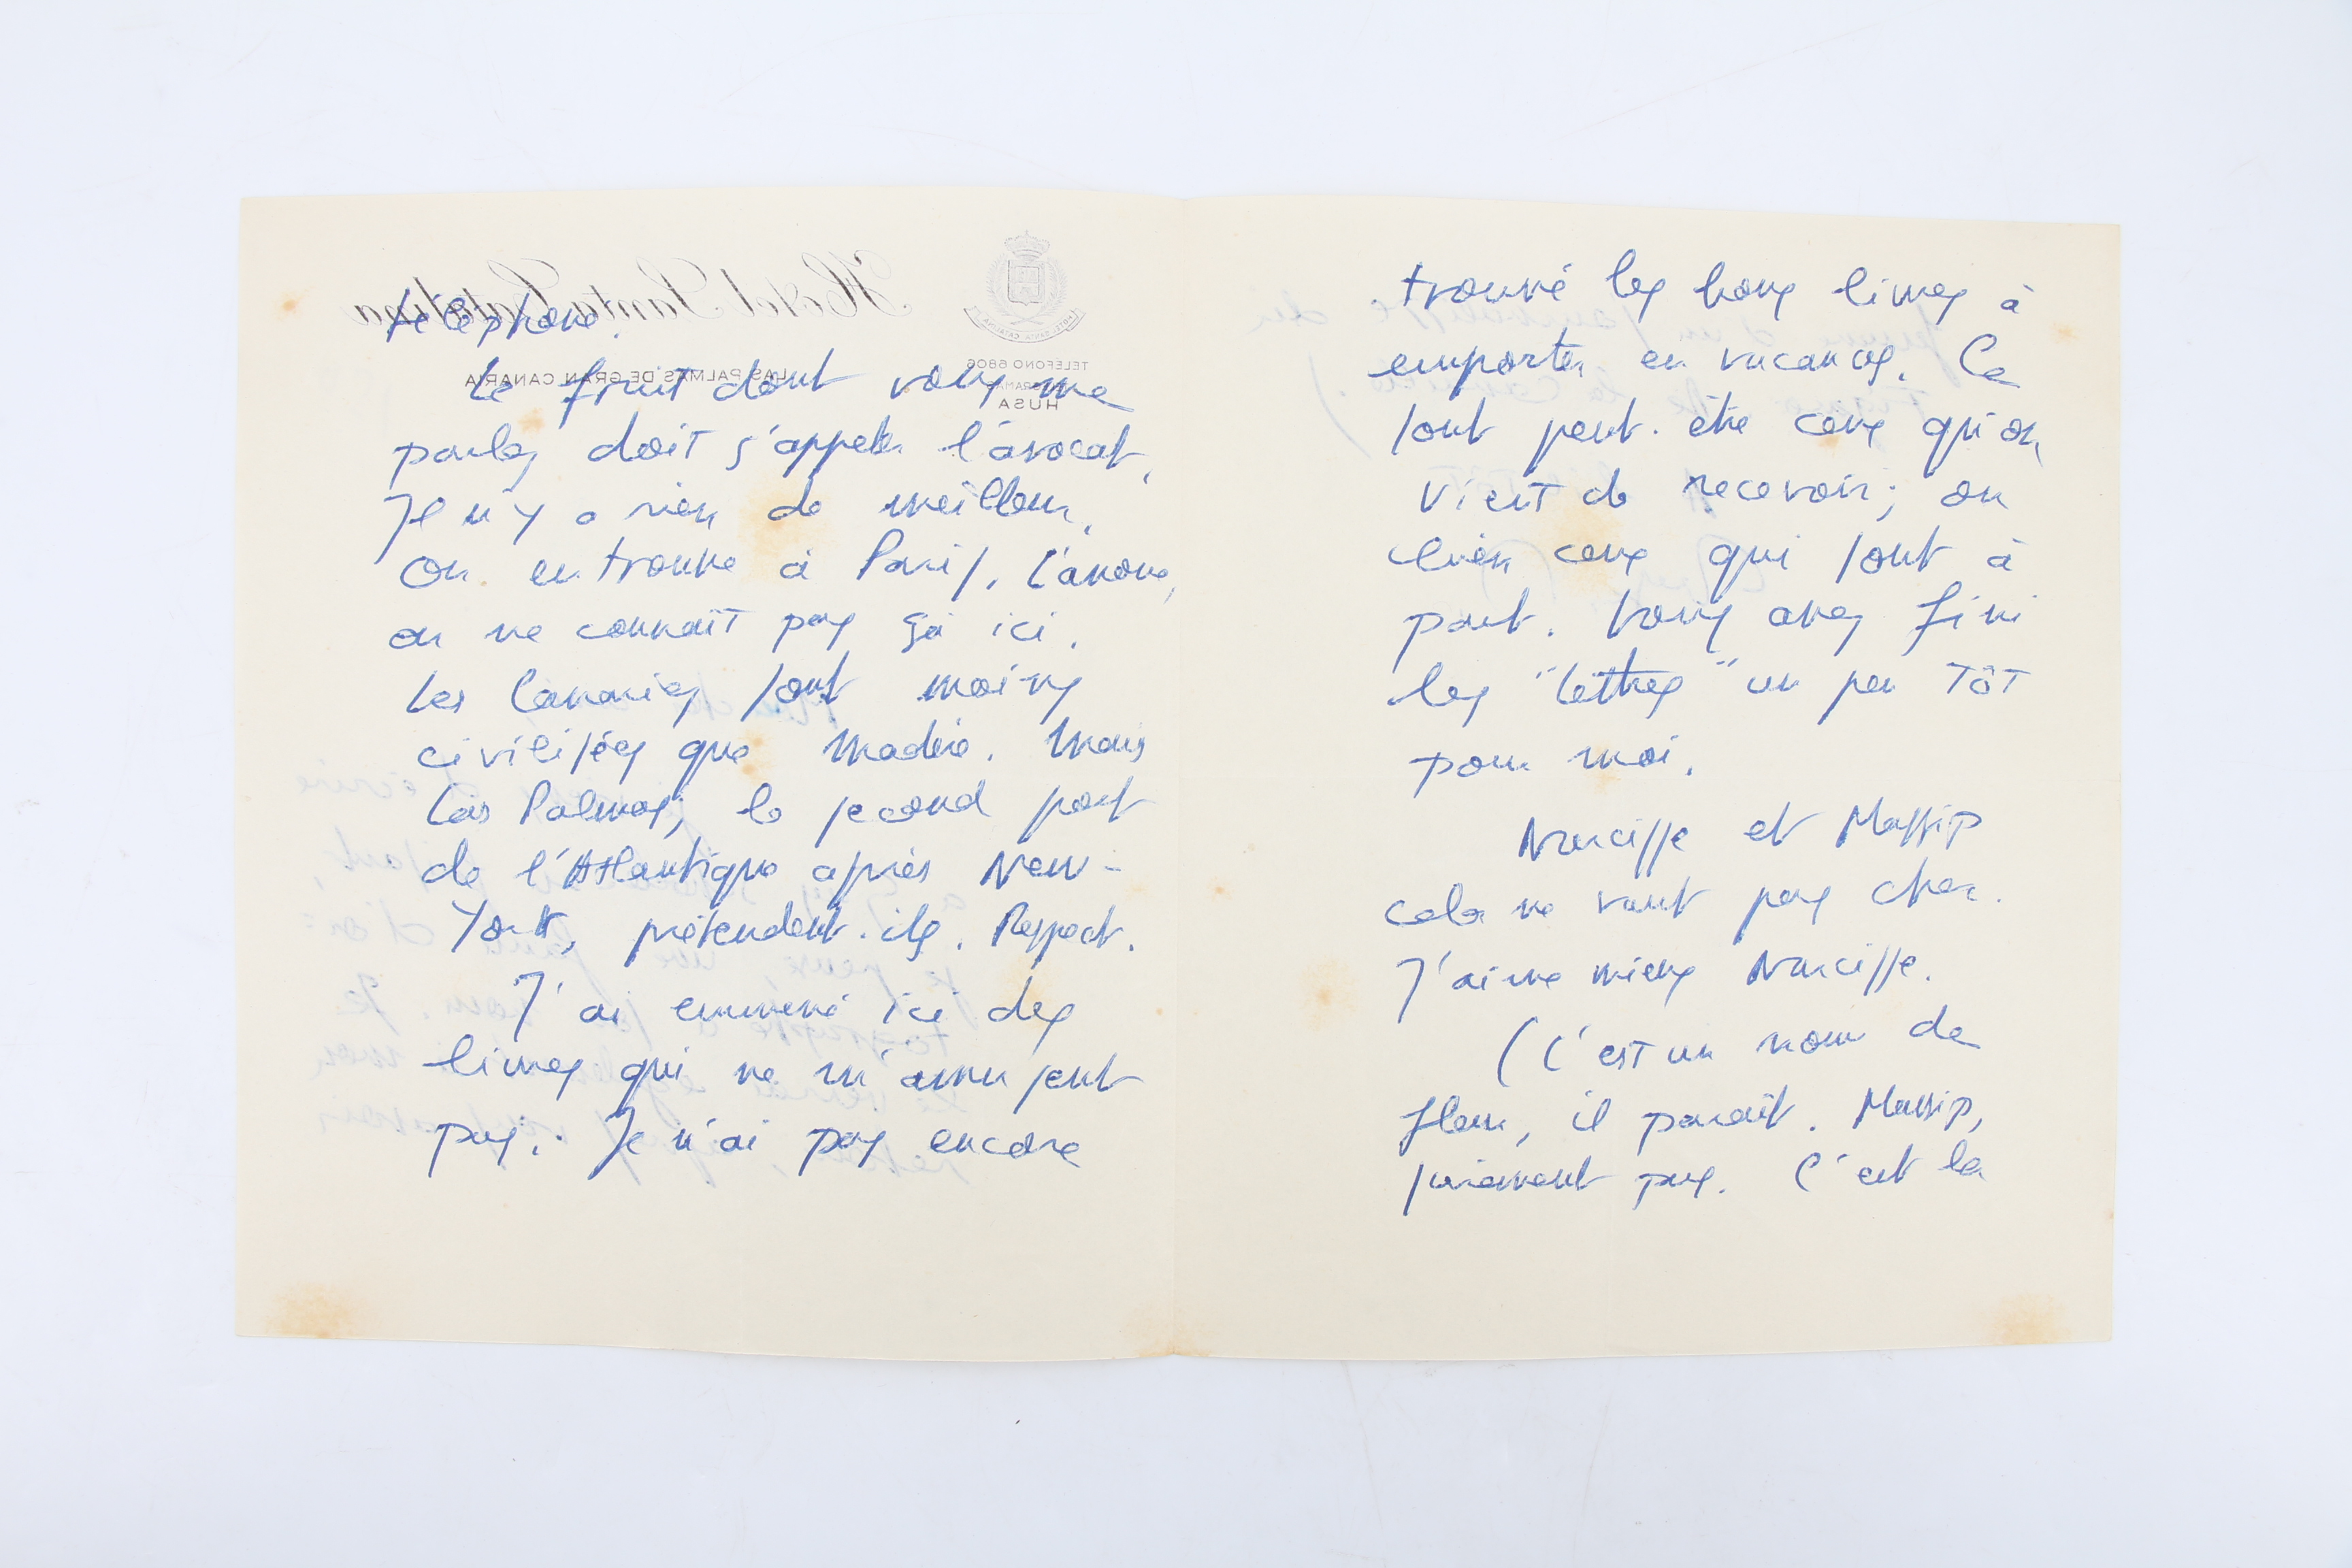 Hotel Santa Catalina
LAS PALMAS DE GRAN CANARIA
TELÉFONO 6806
HUSA
HOTEL SANTA CATALINA
téléphone.
Le fruit dont vous me
parlez doit s'appeler l'avocat,
Il n'y a rien de meilleur.
On en trouve à Paris. L'anone,
on ne connaît pas ça ici.
Les Canaries sont moins
civilisées que Madère. Mais
Las Palmas; le second port
de l'Atlantique après New-
York, prétendent-ils. Respect.
J'ai emmené ici des
livres qui ne m'amusent
pas. Je n'ai pas encore
trouvé les bons livres à
emporter en vacances. Ce
sont peut-être ceux qu'on
vient de recevoir; ou
bien ceux qui sont à
part. Vous avez fini
les "Lettres" un peu tôt
pour moi.
Narcisse et Massip
cela ne vaut pas cher.
J'aime mieux Narcisse.
(C'est un nom de
fleur, il paraît. Massip,
sûrement pas. C'est la